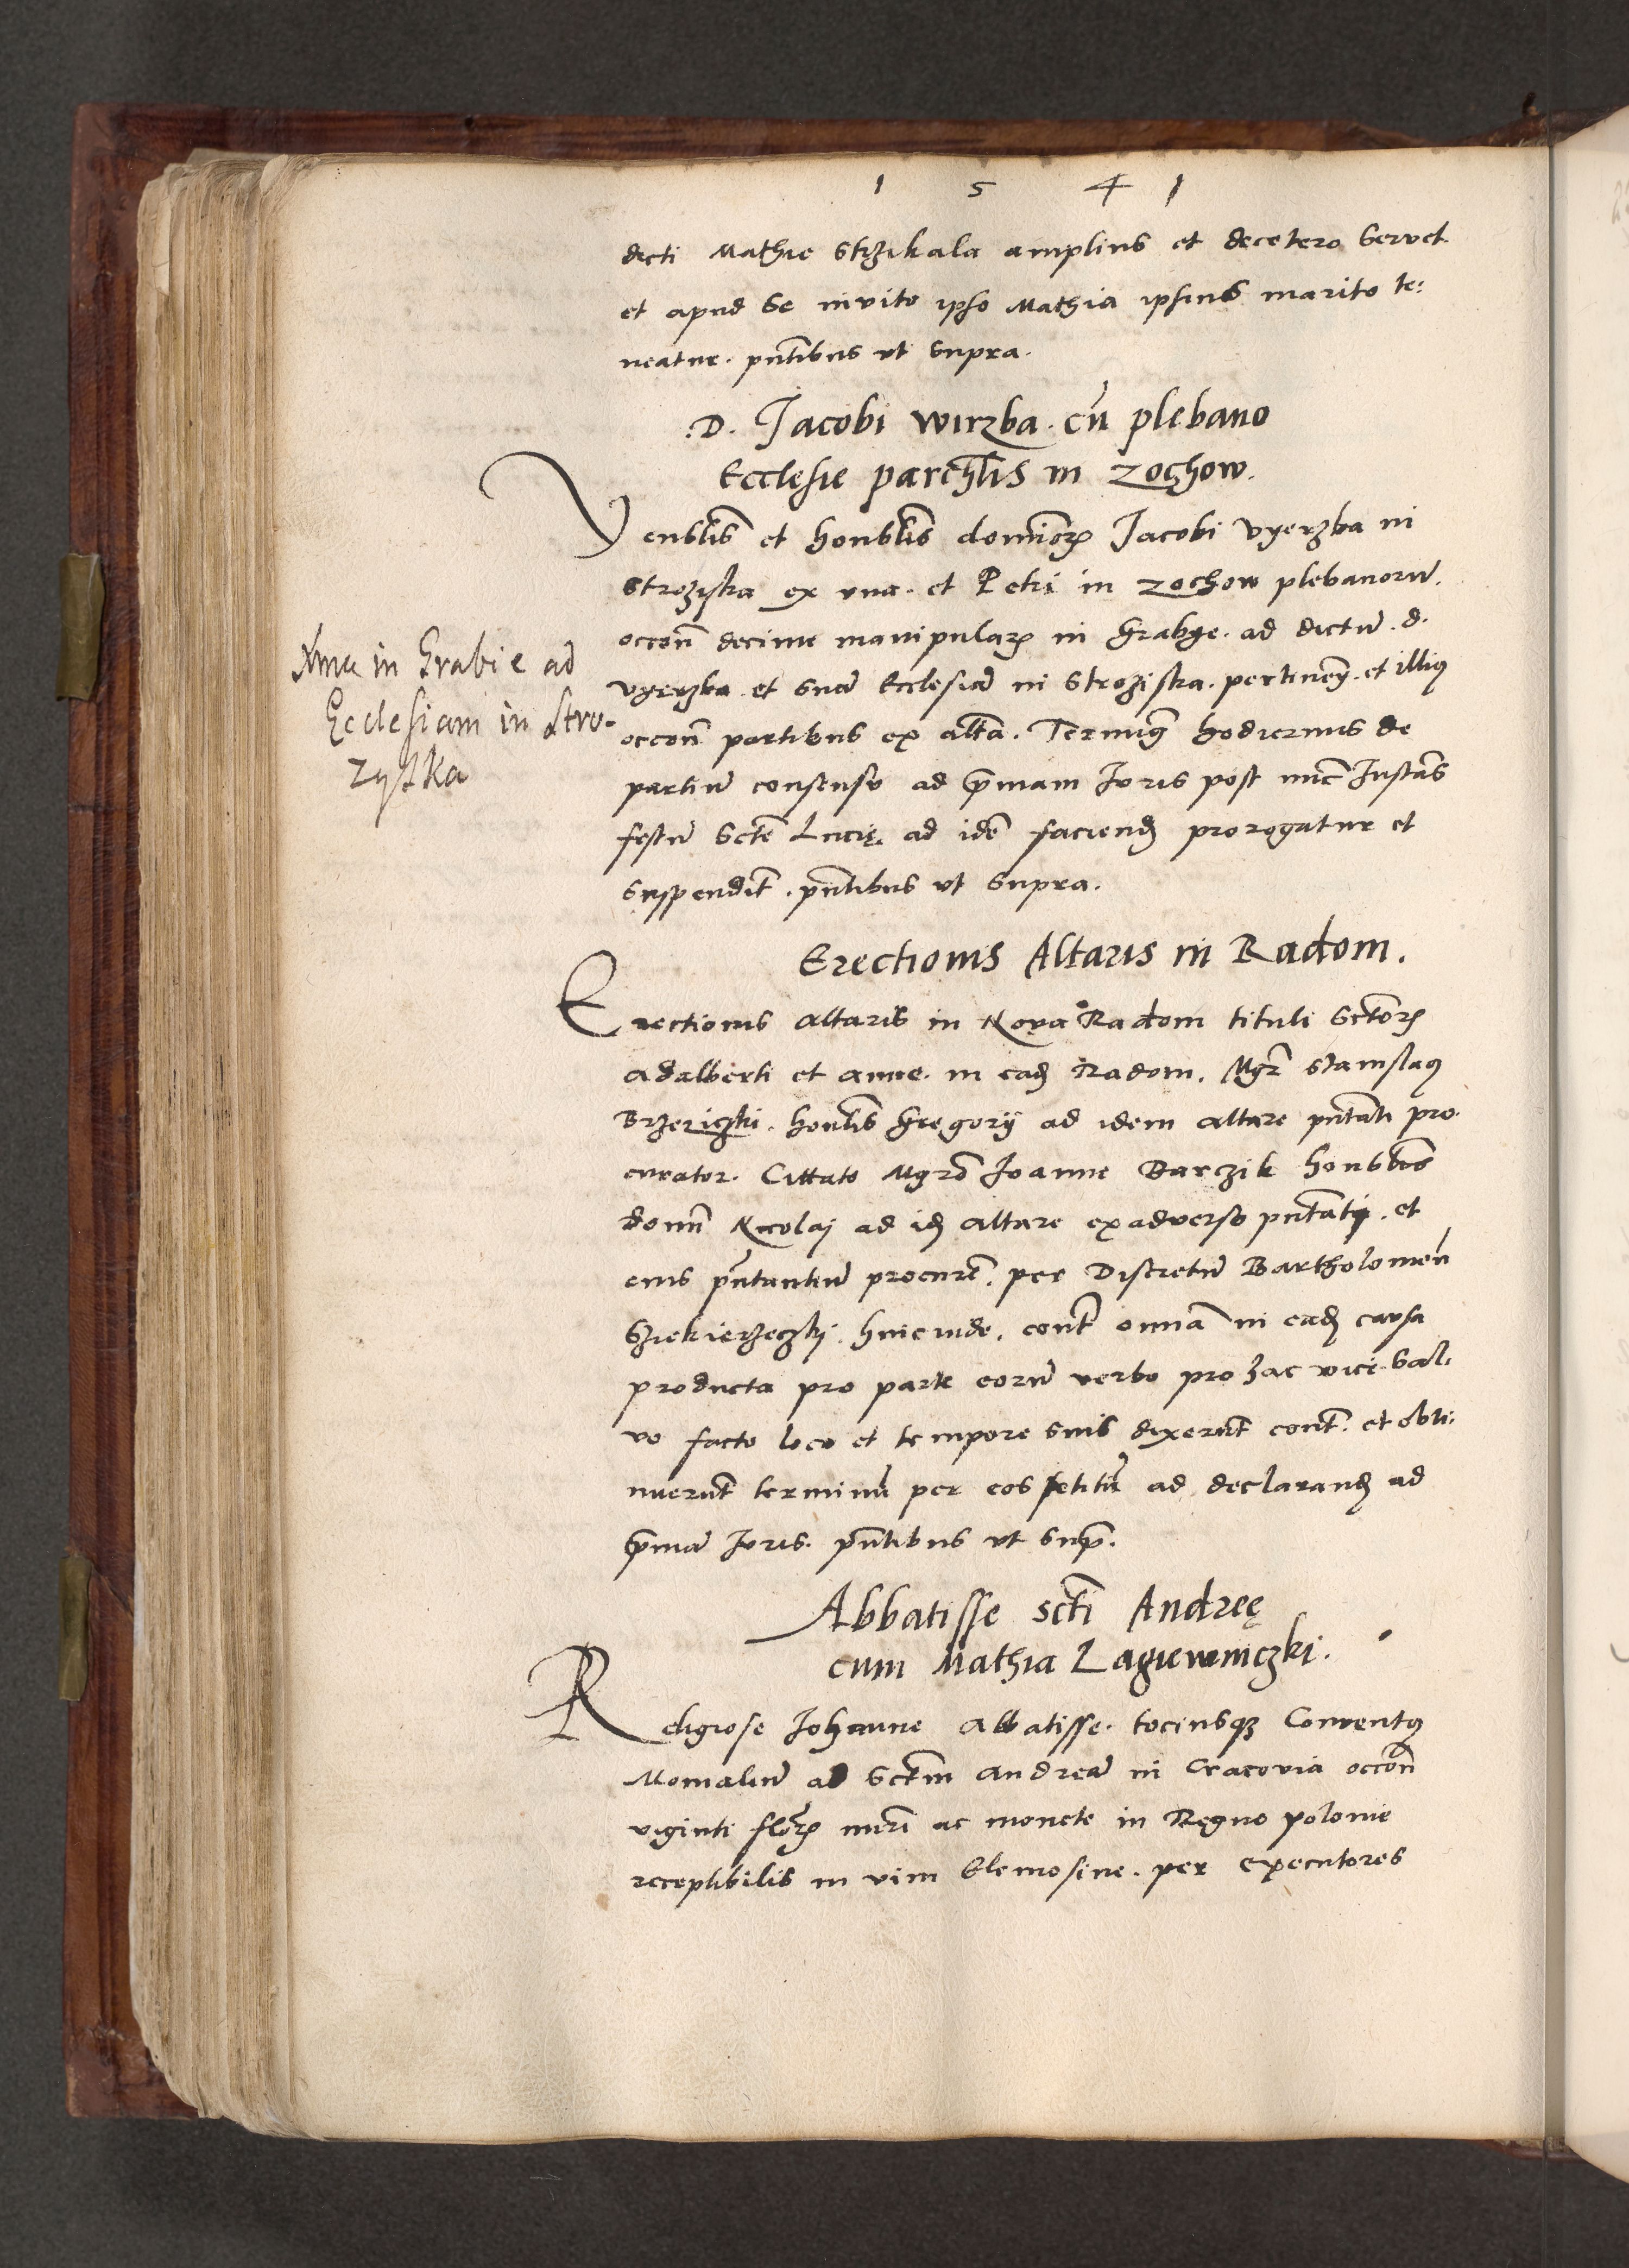 1 5 4 1
dicti Mathie Strzikala amplius et decetero servet
et apud se invito ipso Mathia ipsius marito te:
neatur. pñtibus ut supra.
.D. Jacobi Wirzba. cũ plebano
Ecclesie parchĩlis in Zochow.
Venblĩs et honblĩs dominorꝝ Jacobi Vyerzba in
Strozyska ex una. et Petri in Zochow plebanorũ.
occoñ decime manipularꝝ in Grabye. ad dictũ. d.
Vyerzba. et suã Ecclesiã in Strozyska. pertineñ. et illiꝰ
occoñ partibus ex alta. Terminꝰ hodiernus de
partiũ consensu ad pĩmam Juris post nũc Instãs
festũ Sctẽ Lucię. ad idẽ faciendꝫ prorogatur et
suspendit. pñtibus ut supra.
Xma in Grabie ad
Ecclesiam in Stro-
zyska
Erectionis Altaris in Radom.
Erectionis altaris in Nova Radom tituli Sctorꝝ
Adalberti et Anne. in eadꝫ Radom. Mgr̃ Stanislaꝰ
Brzeziczki. honblĩs Gregorij ad idem altare pñtati pro
curator. Cittato Mgrõ Joanne Barczik honblĩs
domñ Nicolaj ad idꝫ altare ex adverso pñtati. et
eius pñtantiũ procurẽ. per Discretũ Bartholomeũ
Sziekierzeczkj. hincinde. cont̃ omnia in eadꝫ causa
producta pro parte eorũ verbo pro hac vice. Sal.
vo facto loco et tempore suis dixerũt cont̃. et obti:
nuerũt terminũ per eos petitũ ad declarandꝫ ad
pĩmã Juris. pñtibus ut sup̃.
Abbatisse scti Andreę
cum Mathia Lagiewniczki.
Religiose Johanne Abbatisse. tociusqꝫ Conventꝰ
Monialiũ ad Sctum Andreã in Cracovia occoñ
viginti florꝝ nũri ac monete in Regno polonie
receptibilis in vim Elemosine. per executores